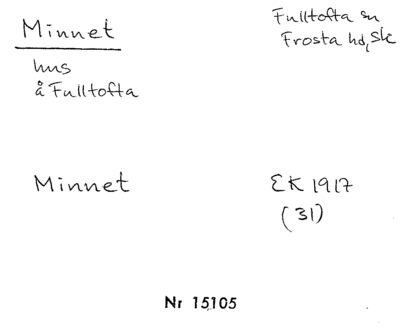 Minnet
Fulltofta sn
Frosta hd, Sk
hus
å Fulltofta
Minnet
EK 1917
(31)
Nr 15105